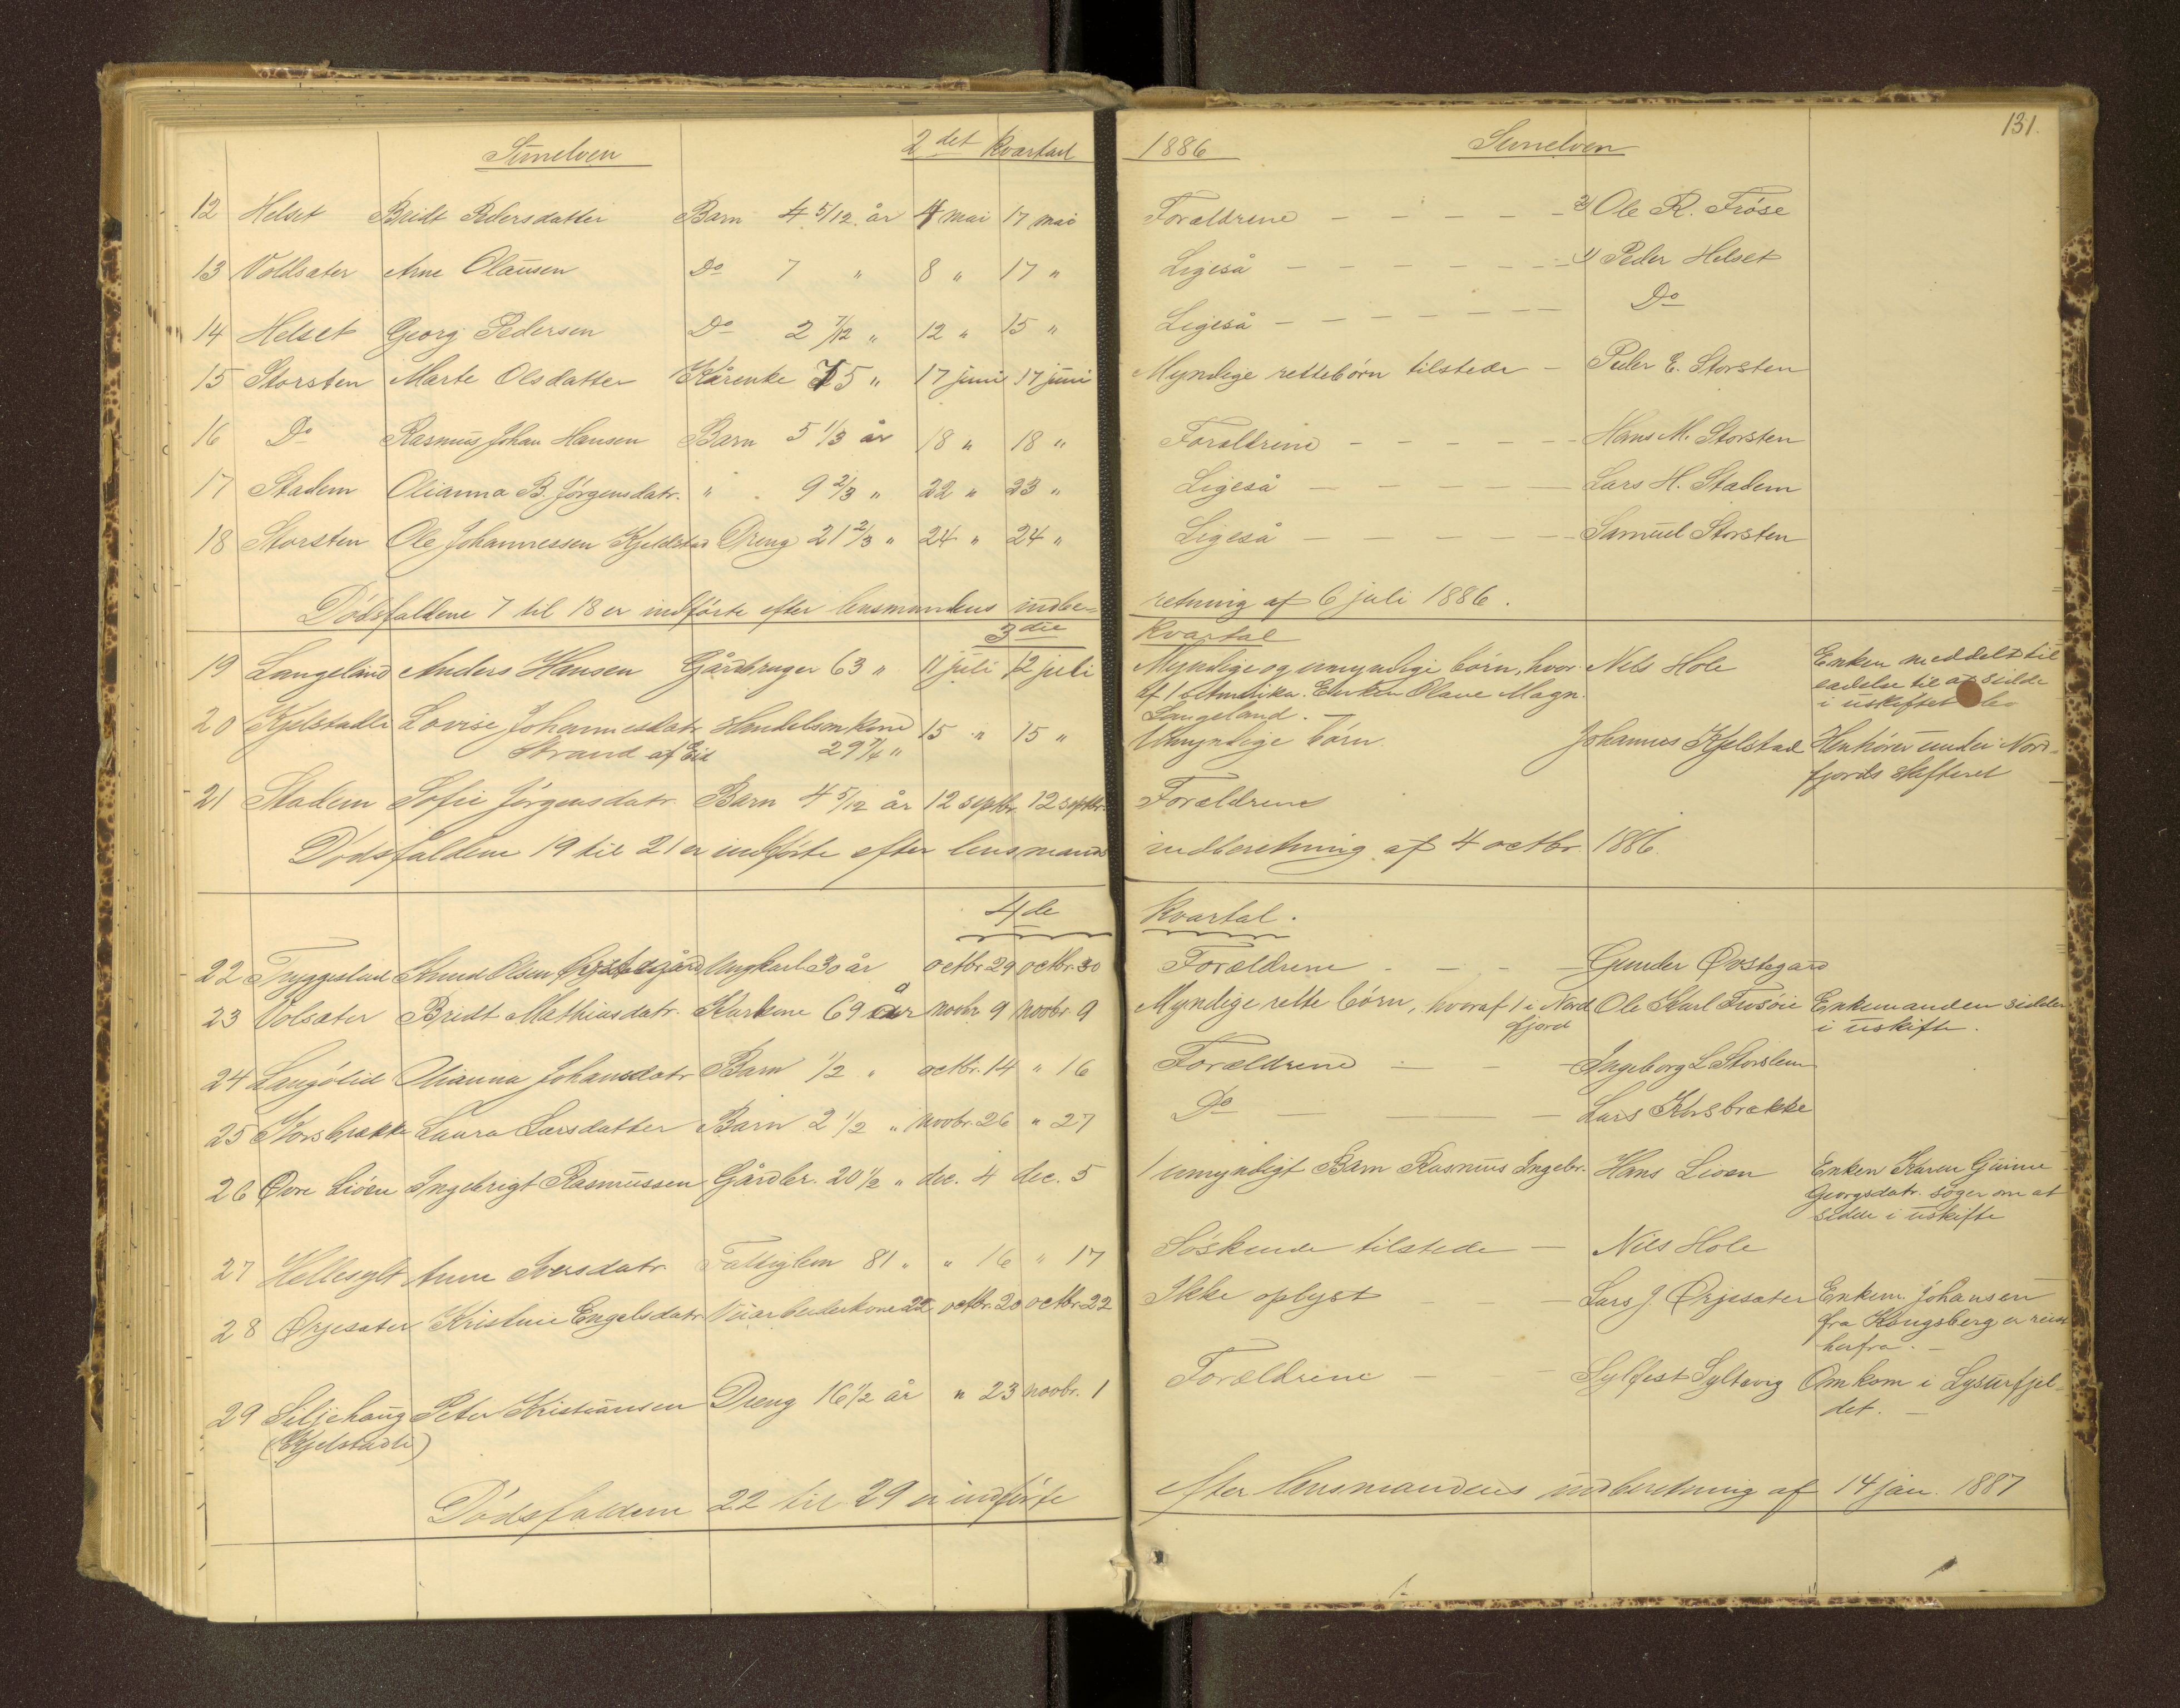 Sunelven 2det Kvartal
12 Helset Bridt Pedersdatter Barn 4 5/12 år 4 mai 17 mai
13 Voldsæter Arne Olausen Do 7 " 8 " 17 "
14 Helset Georg Pedersen Do 2 7/12 " 12 " 15 "
15 Storsten Marte Olsdatter Kårenke 75 " 17 juni 17 juni
16 Do Rasmus Johan Hansen Barn 5 1/3 år 18 " 18 "
17 Stadem Olianna B. Jørgensdatr. " 9 2/3 " 22 " 23 "
18 Storsten Ole Johannessen Kjeldstad Dreng 21 2/3 " 24 " 24 "
Dödsfaldene 7 til 18 er indförte efter lensmandens indbe=
3die
19 Langeland Anders Hansen Gårdbruger 63 " 11 juli 12 juli
20 Kjelstadli Lovise Johannesdatr Handelsm kone 15 " 15 "
Strand af Eid 29 1/4 "
21 Stadem Sofie Jörgensdatr. Barn 4 5/12 år 12 septbr. 12 septbr.
Dödsfaldene 19 til 21 er indförte efter lensmands
4de
22 Tryggestad Knud Olsen Ungkarl 30 år octbr 29 octbr. 30
23 Volsæter Bridt Mathiasdatr. Kårkone 69 år novbr 9 novbr. 9
24 Langölid Olianna Johansdatr Barn 1/2 " octbr. 14 " 16
25 Korsbrække Laura Larsdatter Barn 2 1/2 " novbr. 26 " 27
26 Øvre Liöen Ingebrigt Rasmussen Gårdbr. 20 1/2 " dec. 4 dec. 5
27 Hellesylt Anne Iversdatr. Fattiglem 81 " " 16 " 17
28 Ørjesæter Kristine Engelsdatr. Veiarbeiderkone 22 octbr. 20 octbr. 22
29 Siljehaug Peter Kristiansen Dreng 16 1/2 år " 23 novbr. 1
(Kjelstadli)
Dödsfaldene 22 til 29 er indförte
131.
1886 Sunelven
Forældrene - - - - - 2) Ole R. Fröse
Ligeså - - - - - - 1) Peder Helset
Ligeså - - - - - - Do
Myndige rettebörn tilstede - Peder E. Storsten
Forældrene - - - - - Hans M. Storsten
Ligeså - - - - - Lars H. Stadem
Ligeså - - - - - Samuel Storsten
retning af 6 juli 1886.
Kvartal
Myndige og umyndige börn, hvor- Nels Hole Enken meddelt til
af 1 i Amerika. Enken Olave Magn. ladelse til at sidde
Langeland. - i uskiftet bo
Umyndige börn. Johannes Kjelstad Henhörer under Nord-
fjords skifteret
Forældrene
indberetning af 4 octbr 1886.
Kvartal.
Forældrene - - - Gunder Øvstegard
Myndige rette börn, hvoraf 1 i Nord Ole Karl Frösöie Enkemanden sidder
fjord i uskifte.
Forældrene - - - Ingeborg L Storslem
Do - - - Lars Korsbrække
1 umyndigt Barn Rasmus Ingebr. Hans Lioen Enken Karen Gurine
Georgsdatr. söger om at
sidde i uskifte
Söskende tilstede - Nils Hole
Ikke oplyst - - - Lars J. Ørjesæter Enkem. Johansen
fra Kongsberg er reist
herfra. -
Forældrene - - - Sylfest Syltevig Omkom i Lysurfjel-
det. -
efter lensmandens indberetning af 14 jan. 1887